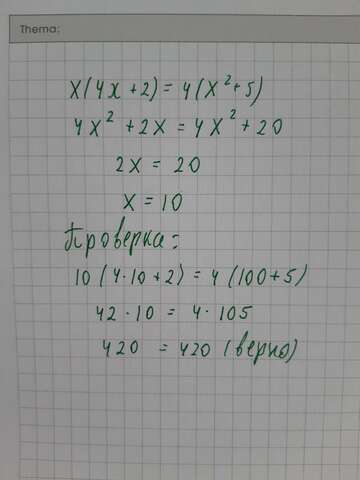 Thema:
x(4x+2)=4(x²+5)
4x²+2x=4x²+20
2x=20
x=10
Проверка:
10(4·10+2)=4(100+5)
42·10=4·105
420=420(верно)